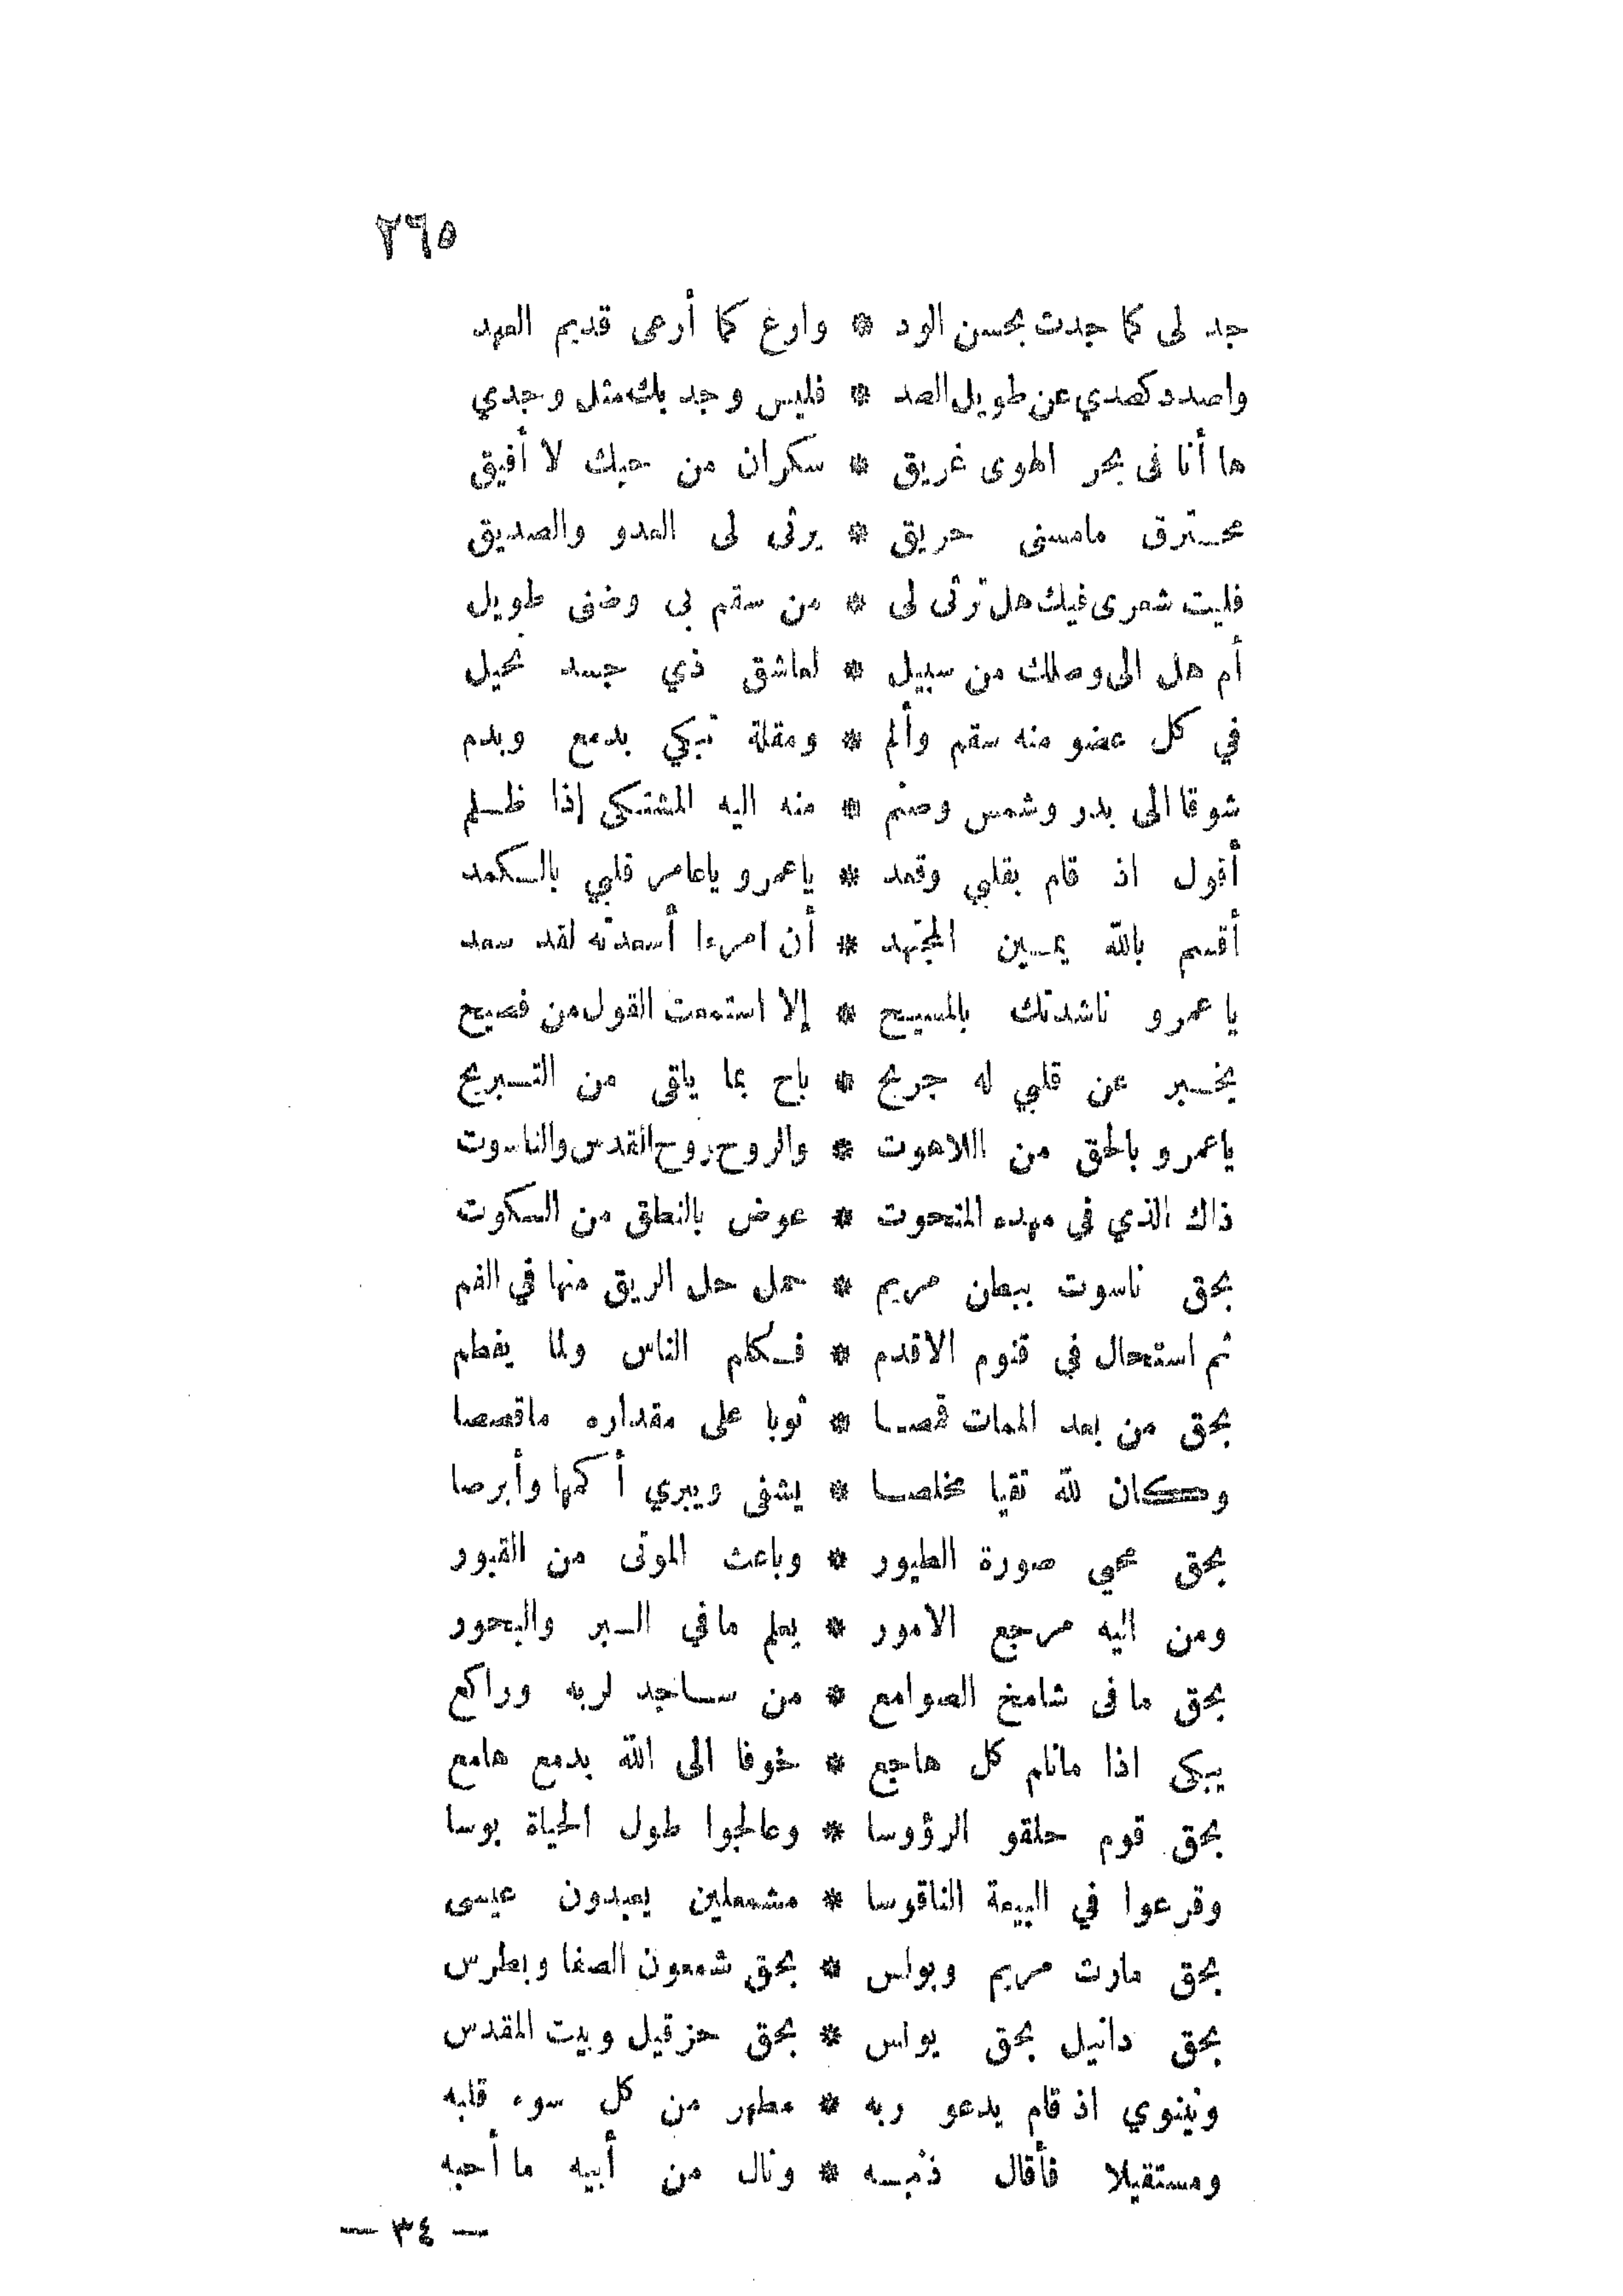 ٢٦٥
جد لى كما جدت بحسن الود * وارع كما أرعى قديم العهد
واصدد كصدي عن طويل الصد * فليس وجد بك مثل وجدي
ها أنا فى بحر الهوى غريق * سكران من حبك لا أفيق
محترق مامسنى حريق * يرثى لى العدو والصديق
فليت شعرى فيك هل ترثى لى * من سقم بى وضنى طويل
أم هل الى وصلك من سبيل * لعاشق ذي جسد نحيل
في كل عضو منه سقم وألم * ومقلة تبكي بدمع وبدم
شوقا الى بدر وشمس وصنم * منه اليه المشتكى إذا ظلم
أقول اذ قام بقلبي وقعد * ياعمرو ياعامر قلبي بالكمد
أقسم بالله يمين المجتهد * أن امرءا أسعدته لقد سعد
يا عمرو ناشدتك بالمسيح * إلا استمعت القول من فصيح
يخبر عن قلبي له جريح * باح بما يلقى من التبريح
ياعمرو بالحق من اللاهوت * والروح روح القدس والناسوت
ذاك الذي فى مهده المنحوت * عوض بالنطق من السكوت
بحق ناسوت ببطن مريم * حمل حل الريق منها في الفم
ثم استحال في قنوم الاقدم * فكلم الناس ولما يفطم
بحق من بعد الممات قمصا * ثوبا على مقداره ماقصصا
وكان لله تقيا مخلصا * يشفى ويبري أكمها وأبرصا
بحق محيي صورة الطيور * وباعث الموتى من القبور
ومن اليه مرجع الامور * يعلم مافي البر والبحور
بحق ما فى شامخ الصوامع * من ساجد لربه وراكع
يبكى اذا مانام كل هاجع * خوفا الى الله بدمع هامع
بحق قوم حلقو الرؤوسا * وعالجوا طول الحياة بوسا
وقرعوا في البيعة الناقوسا * مشمعلين يعبدون عيسى
بحق مارت مريم وبولس * بحق شمعون الصفا وبطرس
بحق دانيل بحق يونس * بحق حزقيل وبيت المقدس
ونينوي اذ قام يدعو ربه * مطهر من كل سوء قلبه
ومستقيلا فأقال ذنبه * ونال من أبيه ما أحبه
— ٣٤ —